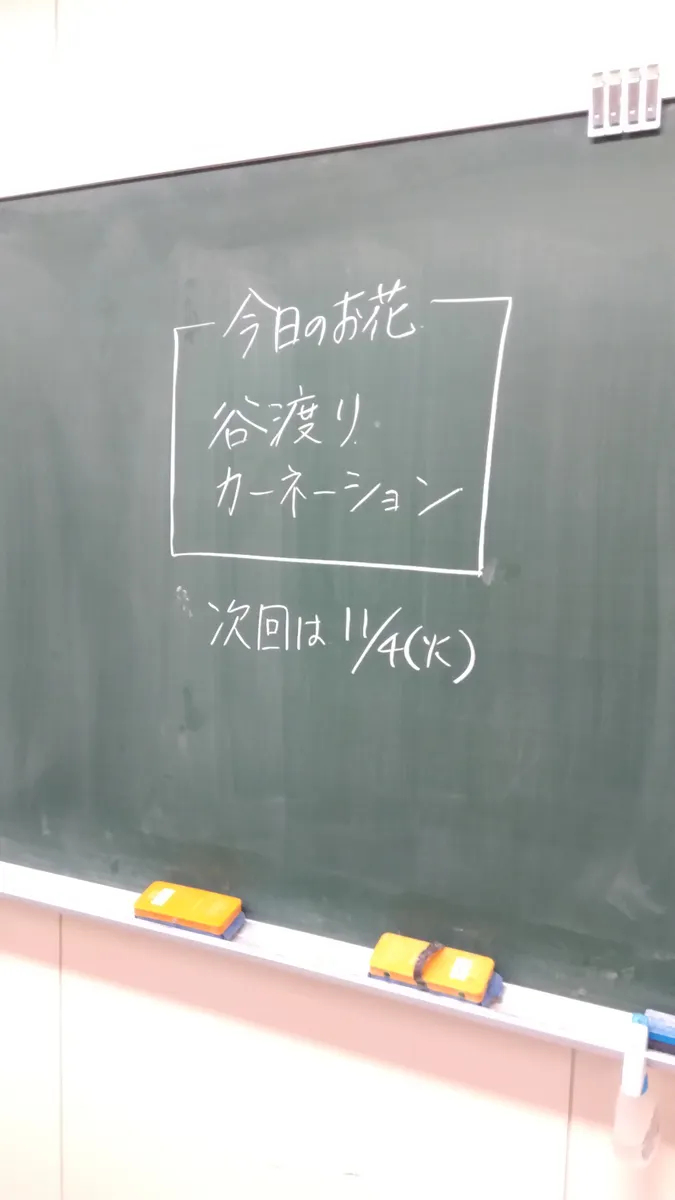 今日のお花
谷渡り
カーネーション
次回は11/4(火)